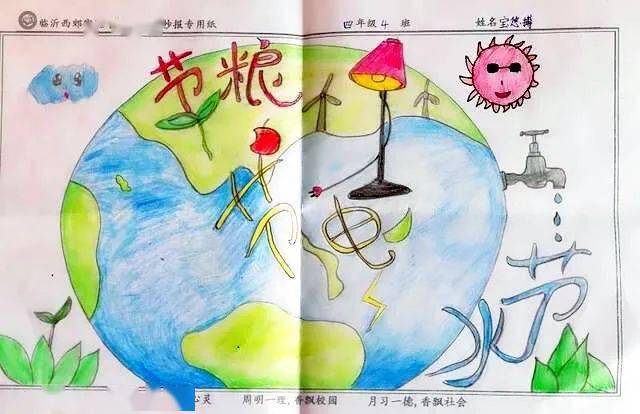 临沂西郊 抄报专用纸 四年级 4 班 姓名
节粮
节电
节水
心灵 周明一理,香飘校园 月习一德,香飘社会